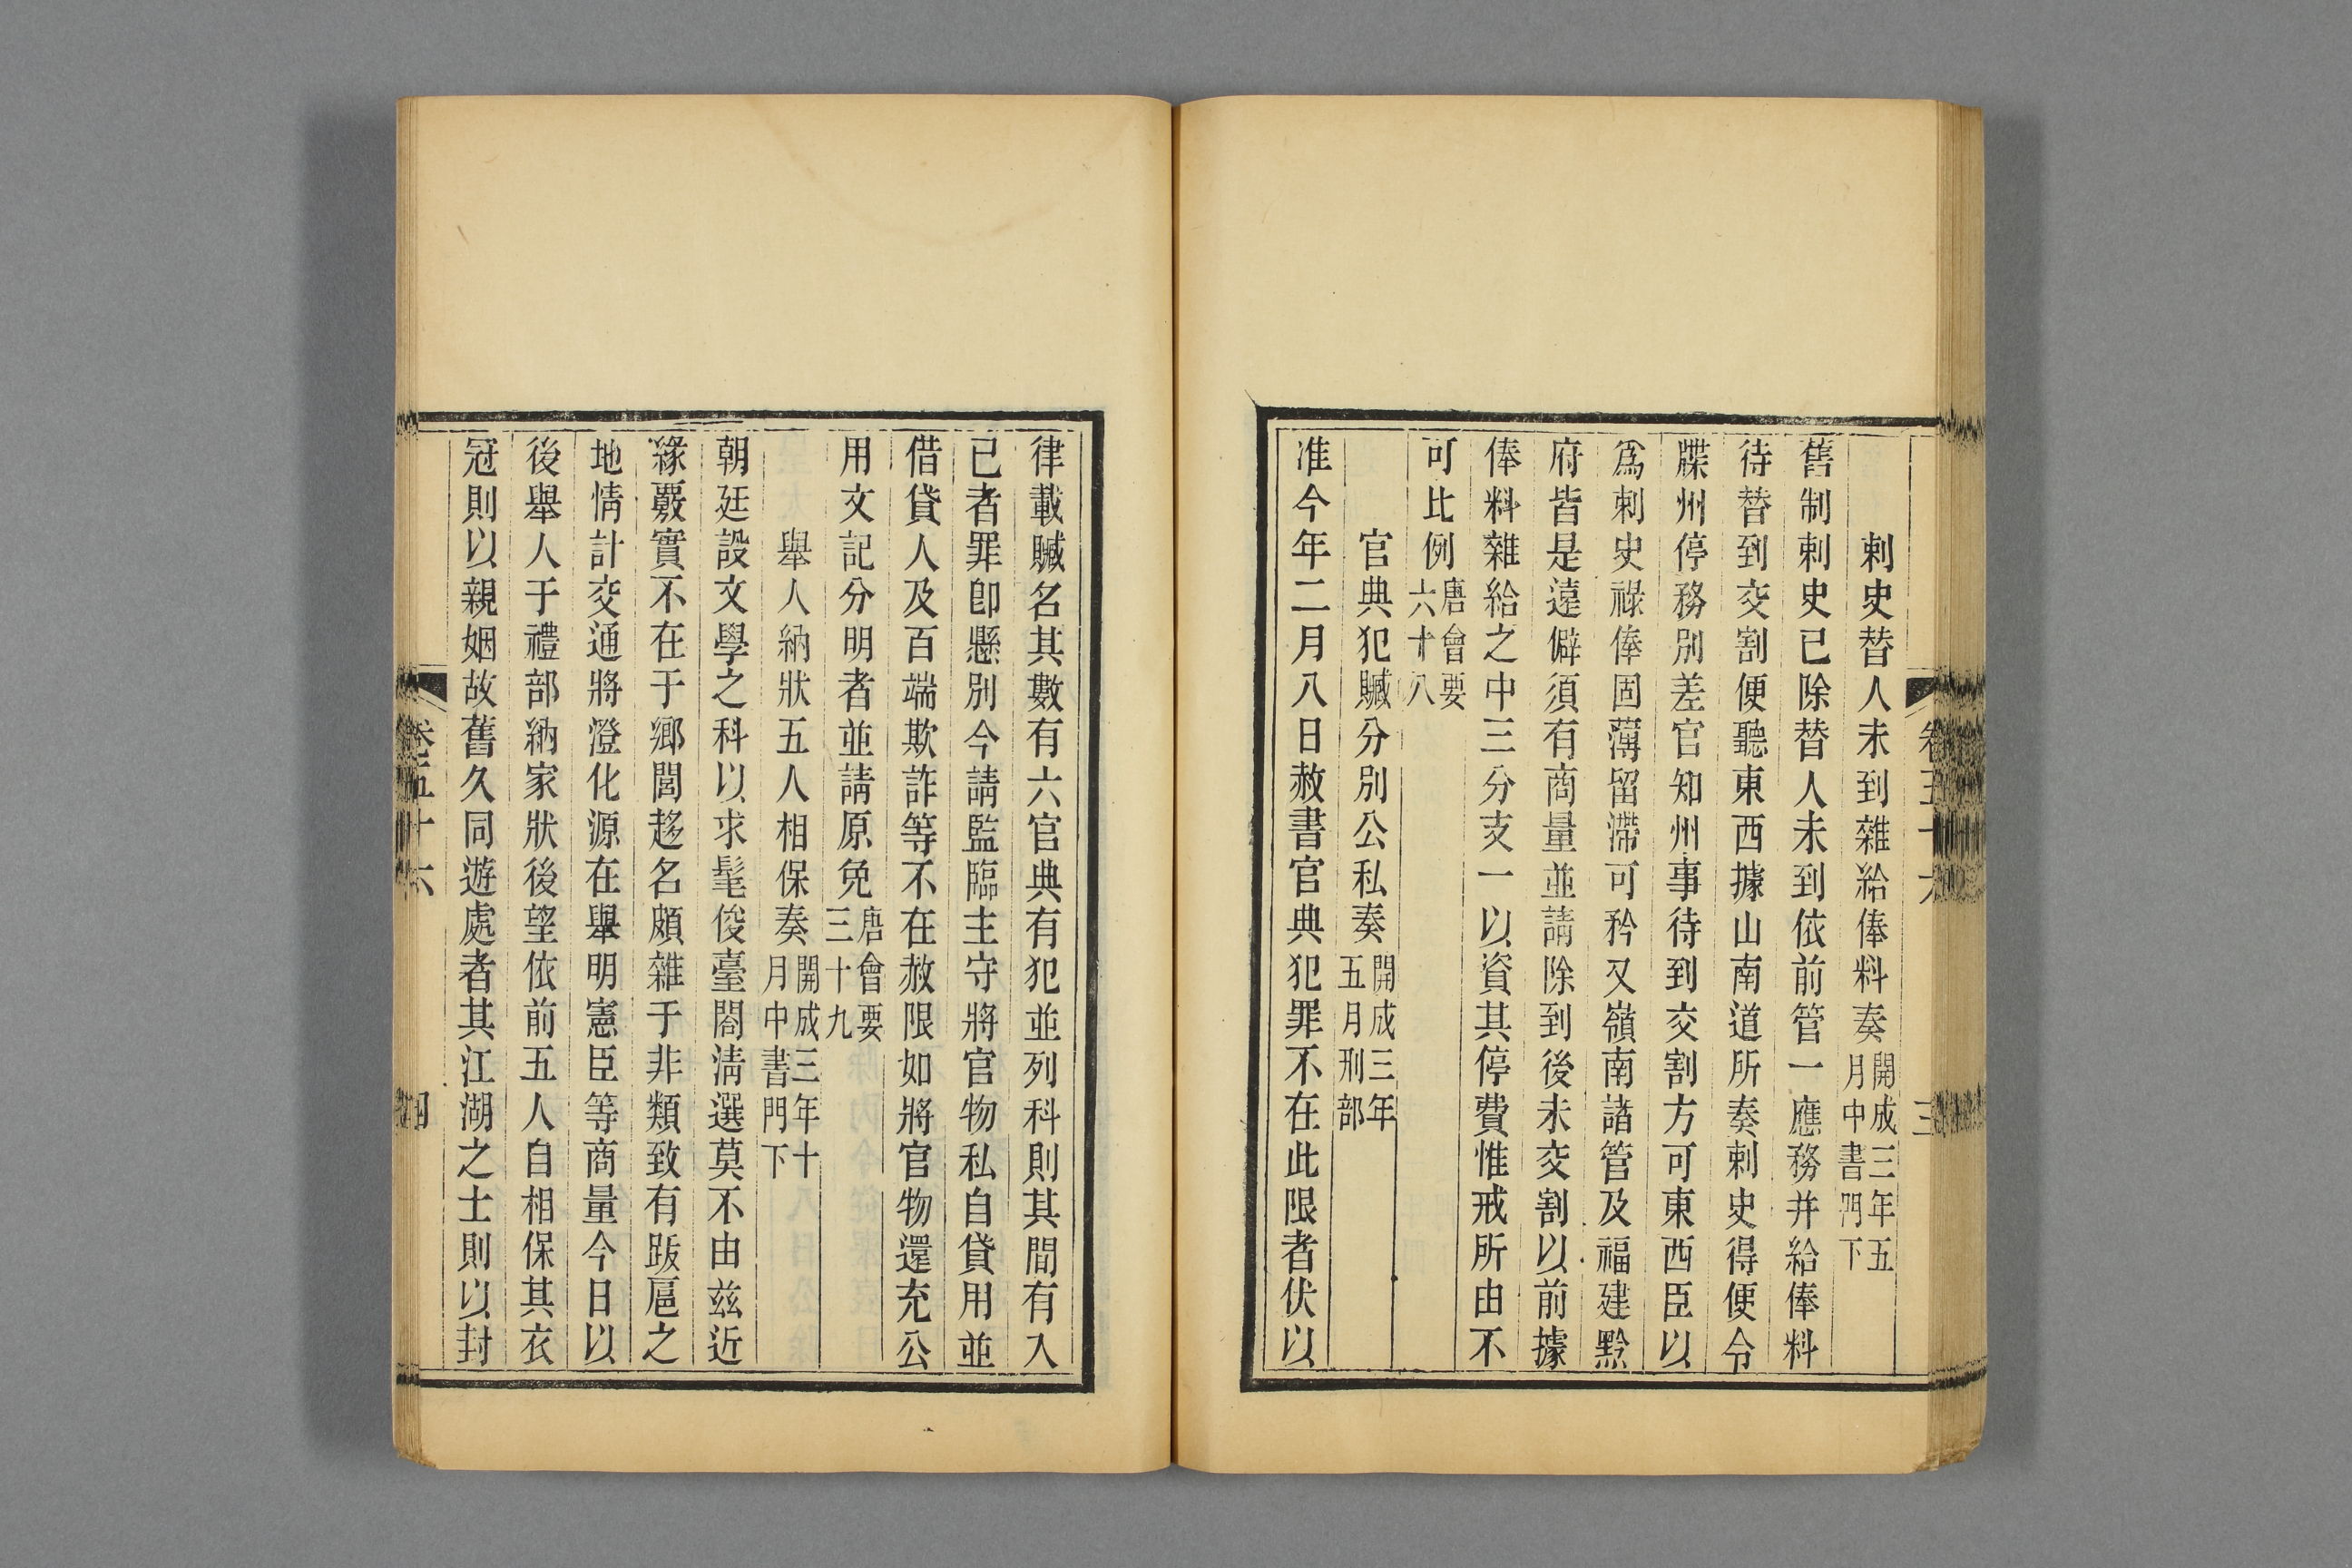 刺史替人未到雜給俸料奏開成三年五月中書門下
舊制刺史已除替人未到依前管一應務并給俸料
待替到交割便聽東西據山南道所奏刺史得便令
牒州停務別差官知州事待到交割方可東西臣以
爲刺史祿俸固薄留滯可矜又嶺南諸管及福建黔
府皆是遠僻須有商量並請除到後未交割以前據
俸料雜給之中三分支一以資其停費惟戒所由不
可比例唐會要六十八
官典犯贓分別公私奏開成三年五月刑部
准今年二月八日赦書官典犯罪不在此限者伏以
卷五十六
三
律載贓名其數有六官典有犯並列科則其間有入
已者罪卽懸別今請監臨主守將官物私自貸用並
借貸人及百端欺詐等不在赦限如將官物還充公
用文記分明者並請原免唐會要三十九
舉人納狀五人相保奏開成三年十月中書門下
朝廷設文學之科以求髦俊臺閣淸選莫不由茲近
緣覈實不在于鄉閭趍名頗雜于非類致有跋扈之
地情計交通將澄化源在舉明憲臣等商量今日以
後舉人于禮部納家狀後望依前五人自相保其衣
冠則以親姻故舊久同遊處者其江湖之士則以封
卷五十六
四